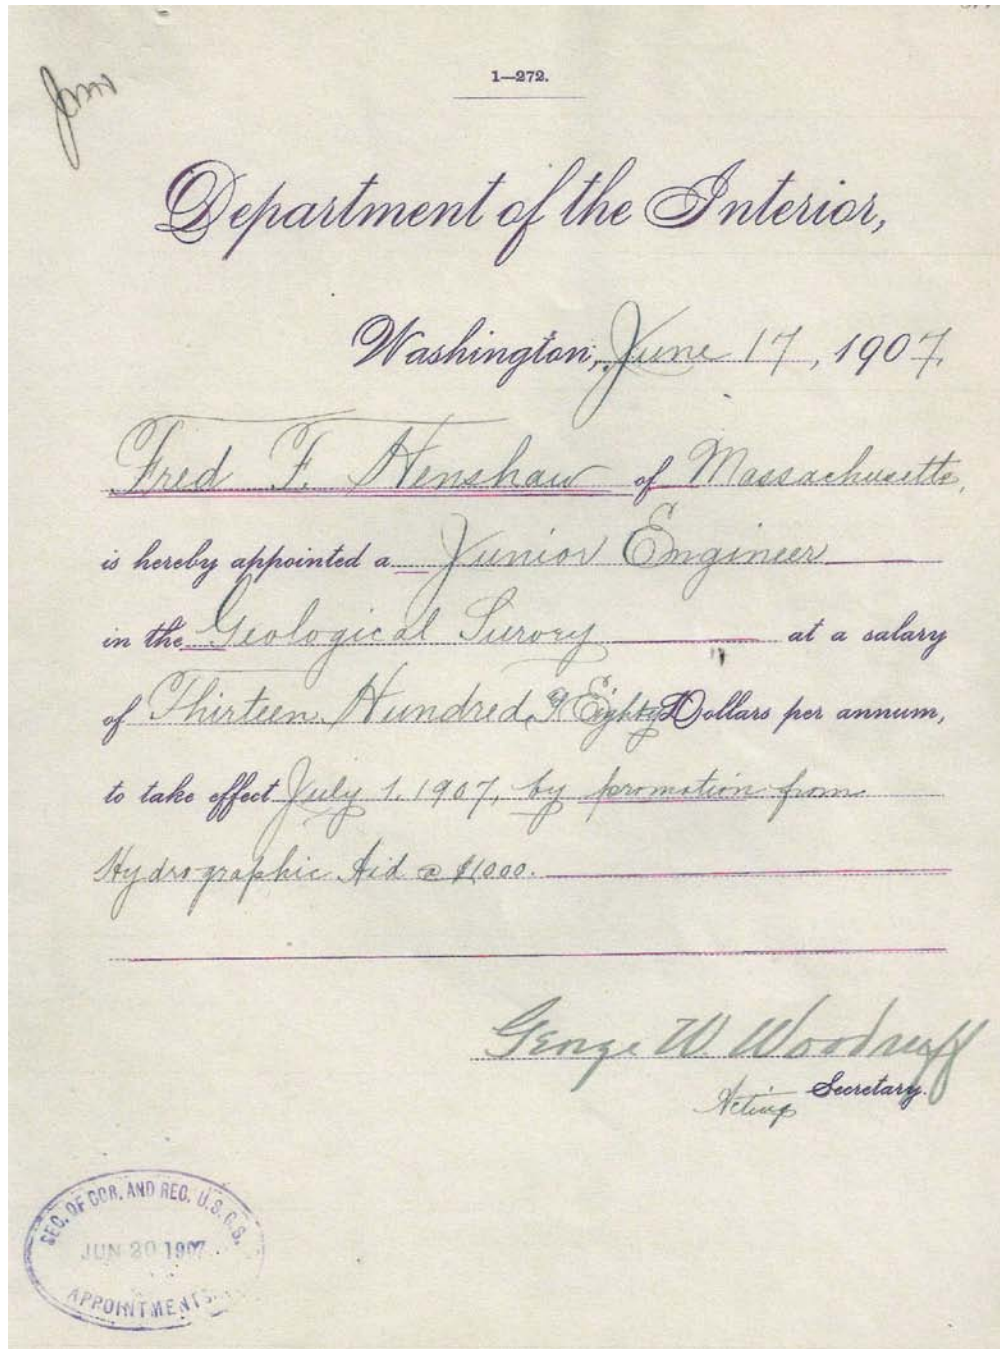 1—272.
Department of the Interior,
Washington, June 17, 1907.
Fred F. Henshaw of Massachusetts,
is hereby appointed a Junior Engineer
in the Geological Survey at a salary
of Thirteen Hundred & Eighty Dollars per annum,
to take effect July 1, 1907, by promotion from
Hydrographic Aid @ $1000.
George W. Woodruff
Acting Secretary.
SEC. OF COR. AND REC. U.S.G.S.
JUN 20 1907
APPOINTMENTS.